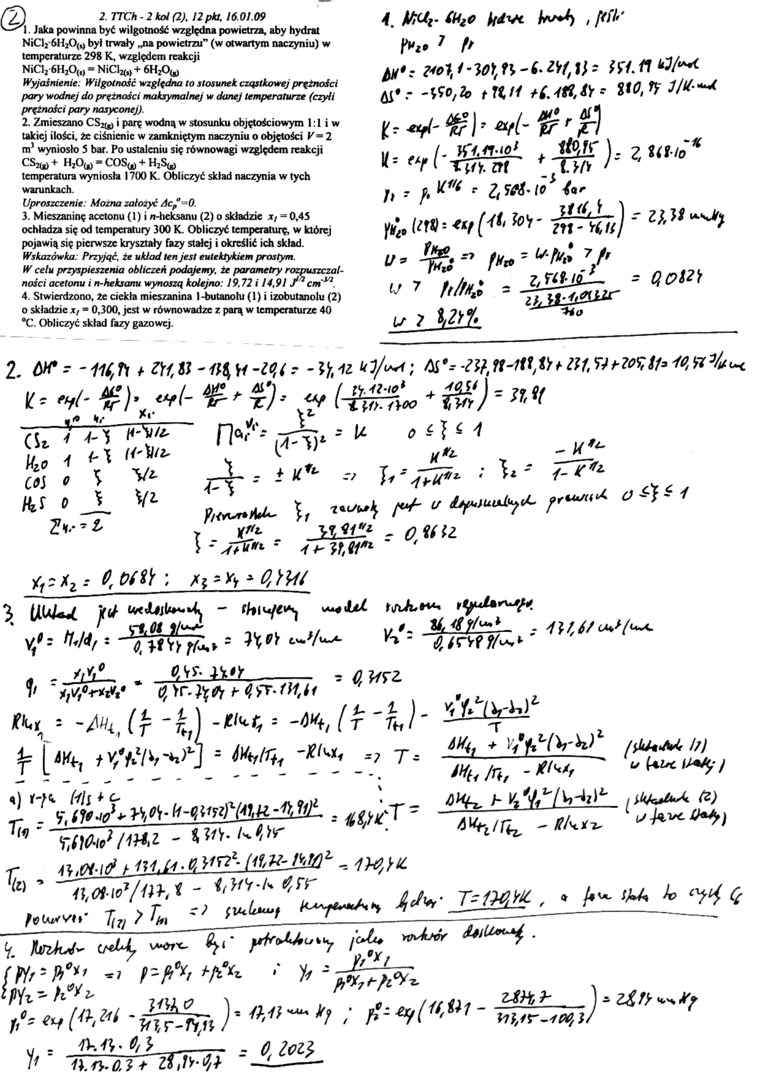 2
2. TTCh - 2 kol (2), 12 pkt, 16.01.09
1. Jaka powinna być wilgotność względna powietrza, aby hydrat
NiCl₂·6H₂O(s) był trwały „na powietrzu” (w otwartym naczyniu) w
temperaturze 298 K, względem reakcji
NiCl₂·6H₂O(s) = NiCl₂(s) + 6H₂O(g)
Wyjaśnienie: Wilgotność względna to stosunek cząstkowej prężności
pary wodnej do prężności maksymalnej w danej temperaturze (czyli
prężności pary nasyconej).
2. Zmieszano CS₂(g) i parę wodną w stosunku objętościowym 1:1 i w
takiej ilości, że ciśnienie w zamkniętym naczyniu o objętości V = 2
m³ wyniosło 5 bar. Po ustaleniu się równowagi względem reakcji
CS₂(g) + H₂O(g) = COS(g) + H₂S(g)
temperatura wyniosła 1700 K. Obliczyć skład naczynia w tych
warunkach.
Uproszczenie: Można założyć Δcₚ°=0.
3. Mieszaninę acetonu (1) i n-heksanu (2) o składzie x₁ = 0,45
ochładza się od temperatury 300 K. Obliczyć temperaturę, w której
pojawią się pierwsze kryształy fazy stałej i określić ich skład.
Wskazówka: Przyjąć, że układ ten jest eutektykiem prostym.
W celu przyspieszenia obliczeń podajemy, że parametry rozpuszczal-
ności acetonu i n-heksanu wynoszą kolejno: 19,72 i 14,91 J^1/2 cm^-3/2.
4. Stwierdzono, że ciekła mieszanina 1-butanolu (1) i izobutanolu (2)
o składzie x₁ = 0,300, jest w równowadze z parą w temperaturze 40
°C. Obliczyć skład fazy gazowej.
1. NiCl₂·6H₂O będzie trwały, jeśli
p_H₂O > p_r
ΔH° = 2107,1-304,93-6·241,83 = 351.19 kJ/mol
K = exp(-ΔG°/RT) = exp(-ΔH°/RT + ΔS°/R)
K = exp(-351.19·10³/8.314·298 + 880,95/8.314) = 2,868·10⁻¹⁶
p_r = p₀ K^1/6 = 2,568·10⁻³ bar
p°_H₂O (298) = exp(18,304 - 3816,4/298-46,13) = 23,38 mmHg
w = p_H₂O/p°_H₂O => p_H₂O = w·p°_H₂O > p_r
w > p_r/p°_H₂O = 2,568·10⁻³/(23,38·1,01325/760) = 0,0824
w > 8,24%
2. ΔH° = -116,94 + 241,83 - 138,41 - 20,6 = -34,12 kJ/mol; ΔS° = -237,98-188,84+231,57+205,81 = 10,56 J/K·mol
K = exp(-ΔG°/RT) = exp(-ΔH°/RT + ΔS°/R) = exp(34,12·10³/8.314·1700 + 10,56/8,314) = 39,81
n_i⁰ n_i x_i
CS₂ 1 1-ξ (1-ξ)/2
H₂O 1 1-ξ (1-ξ)/2
COS 0 ξ ξ/2
H₂S 0 ξ ξ/2
Σn_i = 2
Πa_i^νi = ξ²/(1-ξ)² = K 0 ≤ ξ ≤ 1
ξ/1-ξ = ± K^1/2 => ξ₁ = K^1/2/1+K^1/2 ; ξ₂ = -K^1/2/1-K^1/2
Pierwiastek ξ₁ zawsze jest w dopuszczalnych granicach 0≤ξ≤1
ξ = K^1/2/1+K^1/2 = 39,81^1/2/1+39,81^1/2 = 0,8632
x₁ = x₂ = 0,0684 ; x₃ = x₄ = 0,4316
3. Układ jest niedoskonały - stosujemy model roztworu regularnego.
φ₁ = x₁V₁⁰/x₁V₁⁰+x₂V₂⁰ = 0,45·74,04/0,45·74,04+0,55·131,61 = 0,3152
R ln x₁ = -ΔH_t1 (1/T - 1/T_t1) - R ln γ₁ = -ΔH_t1 (1/T - 1/T_t1) - V₁⁰φ₂²(δ₁-δ₂)²/T
1/T [ΔH_t1 + V₁⁰φ₂²(δ₁-δ₂)²] = ΔH_t1/T_t1 - R ln x₁ => T = ΔH_t1 + V₁⁰φ₂²(δ₁-δ₂)²/ΔH_t1/T_t1 - R ln x₁ (składnik (1) w fazie stałej)
T(1) = 5,690·10³+74,04·(1-0,3152)²(19,72-14,91)²/5,690·10³/178,2 - 8,314·ln 0,45 = 168,4K
T = ΔH_t2 + V₂⁰φ₁²(δ₁-δ₂)²/ΔH_t2/T_t2 - R ln x₂ (składnik (2) w fazie stałej)
T(2) = 13,08·10³+131,61·0,3152²·(19,72-14,91)²/13,08·10³/177,8 - 8,314·ln 0,55 = 170,4K
Ponieważ T(2) > T(1) => szukaną temperaturą będzie T=170,4K, a faza stała to czysty C₆
4. Roztwór ciekły może być potraktowany jako roztwór doskonały.
py₁ = p₁⁰x₁ => p = p₁⁰x₁ + p₂⁰x₂ ; y₁ = p₁⁰x₁/p₁⁰x₁+p₂⁰x₂
py₂ = p₂⁰x₂
y₁ = 17.13·0,3/17.13·0.3 + 28,94·0,7 = 0,2023